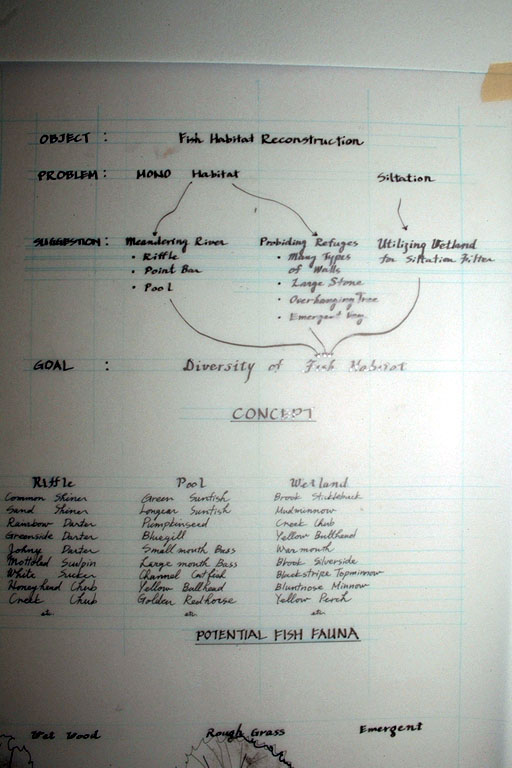 OBJECT : Fish Habitat Reconstruction
PROBLEM : MONO Habitat Siltation
SUGGESTION : Meandering River Probiding Refuges Utilizing Wetland
• Riffle • Many Types for Siltation Filter
• Point Bar of Walls
• Pool • Large Stone
• Overhanging Tree
• Emergent Veg.
GOAL : Diversity of Fish Habitat
CONCEPT
Riffle Pool Wetland
Common Shiner Green Sunfish Brook Stickleback
Sand Shiner Longear Sunfish Mudminnow
Rainbow Darter Pumpkinseed Creek Chub
Greenside Darter Bluegill Yellow Bullhead
Johny Darter Small mouth Bass Warmouth
Mottoled Sculpin Large mouth Bass Brook Silverside
White Sucker Channel Catfish Blackstripe Topminnow
Honeyhead Chub Yellow Bullhead Bluntnose Minnow
Creek Chub Golden Redhorse Yellow Perch
etc. etc. etc.
POTENTIAL FISH FAUNA
Wet Wood Rough Grass Emergent